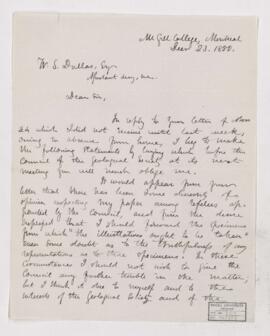 McGill College, Montreal
Decr 23. 1882.
W. S. Dallas, Esq.
Assistant Secy, &c.
Dear Sir,
In reply to your letter of Nov
which I did not receive until last week,
owing to absence from home, I beg to make
the following statements, laying which before the
Council of the Geological Society at its next
meeting you will much oblige me.
It would appear from your
letter that there has been some diversity of
opinion respecting my paper among referees ap-
pointed by the Council, and from the desire
expressed that I should forward the specimens
from which the illustrations ought to be taken
even some doubt as to the truthfulness of my
representations as to these specimens. In these
circumstances I should not wish to give the
Council any further trouble in the matter,
but I think it due to myself and to the
interests of the Geological Society and of the